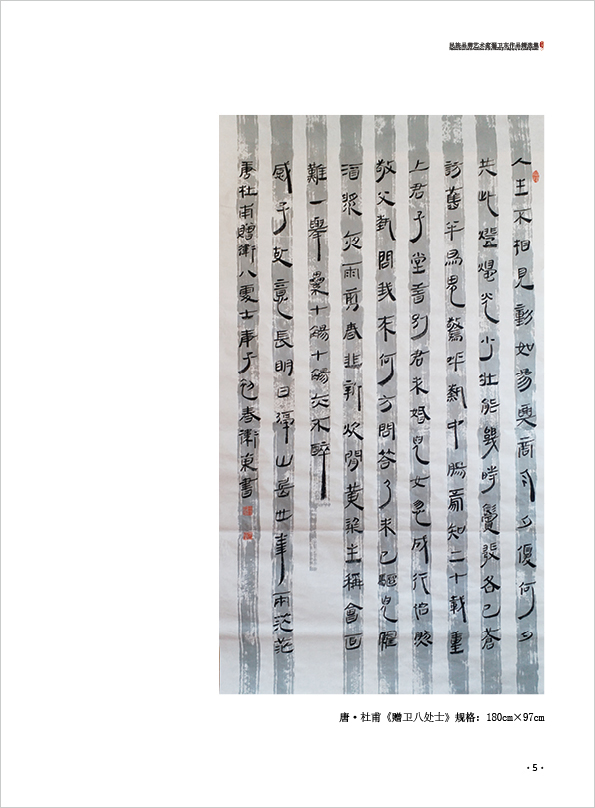 民族品牌艺术家翟卫东作品精选集
人生不相見動如參與商今夕復何夕
共此燈燭光少壯能幾時鬢髮各已蒼
訪舊半為鬼驚呼熱中腸焉知二十載重
上君子堂昔別君未婚兒女忽成行怡然
敬父執問我來何方問答乃未已驅兒羅
酒漿夜雨剪春韭新炊間黃粱主稱會面
難一舉累十觴十觴亦不醉
感子故意長明日隔山岳世事兩茫茫
唐杜甫贈衛八處士庚子春衛東書
唐·杜甫《赠卫八处士》规格：180cm×97cm
·5·